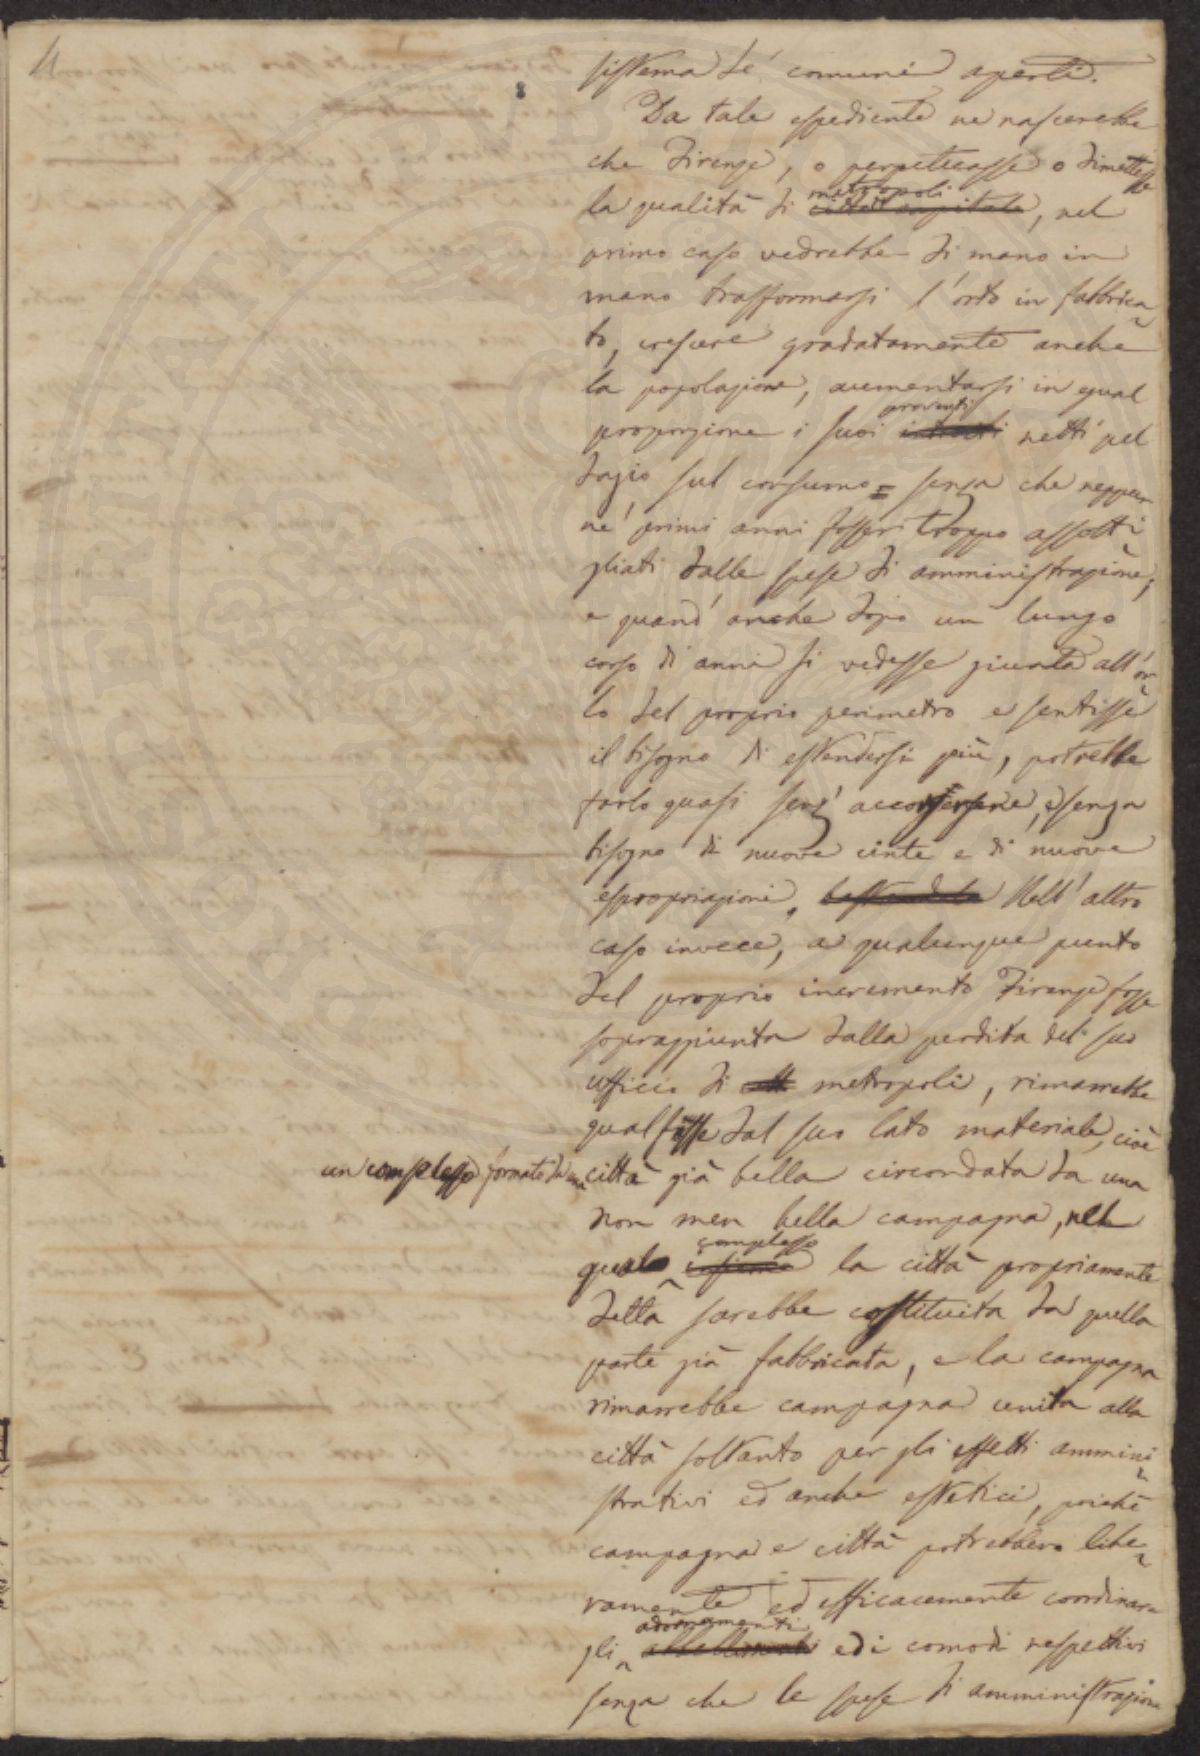 4
sistema de' comuni aperti.
Da tale espediente ne nascerebbe
che Firenze, o perpetuasse o dimettesse
metropoli
la qualità di città capitale, nel
primo caso vedrebbe di mano in
mano trasformarsi l'orto in fabbrica=
to, crescere gradatamente anche
la popolazione, aumentarsi in egual
proventi
proporzione i suoi introiti netti pel
dazio sul consumo = senza che neppur
ne' primi anni fosser troppo assotti=
gliati dalle spese di amministrazione;
e quand'anche dopo un lungo
corso di anni si vedesse giunta all'or=
lo del proprio perimetro e sentisse
il bisogno di estendersi più, potrebbe
farlo quasi senz'accorgersene, e senza
bisogno di nuove cinte e di nuove
espropriazioni. bastandole Nell'altro
caso invece, a qualunque punto
del proprio incremento Firenze fosse
sopraggiunta dalla perdita del suo
ufficio di metropoli, rimarrebbe
qual fosse dal suo lato materiale, cioè
un complesso formato da una città già bella circondata da una
non men bella campagna, nel
complesso
quale insieme la città propriamente
detta sarebbe costituita da quella
parte già fabbricata, e la campagna
rimarrebbe campagna unita alla
città soltanto per gli effetti ammini=
strativi ed anche estetici, poichè
campagna e città potrebbero libe=
ramente ed efficacemente coordinare
adornamenti
gli abbellimenti ed i comodi respettivi
senza che le spese di amministrazione